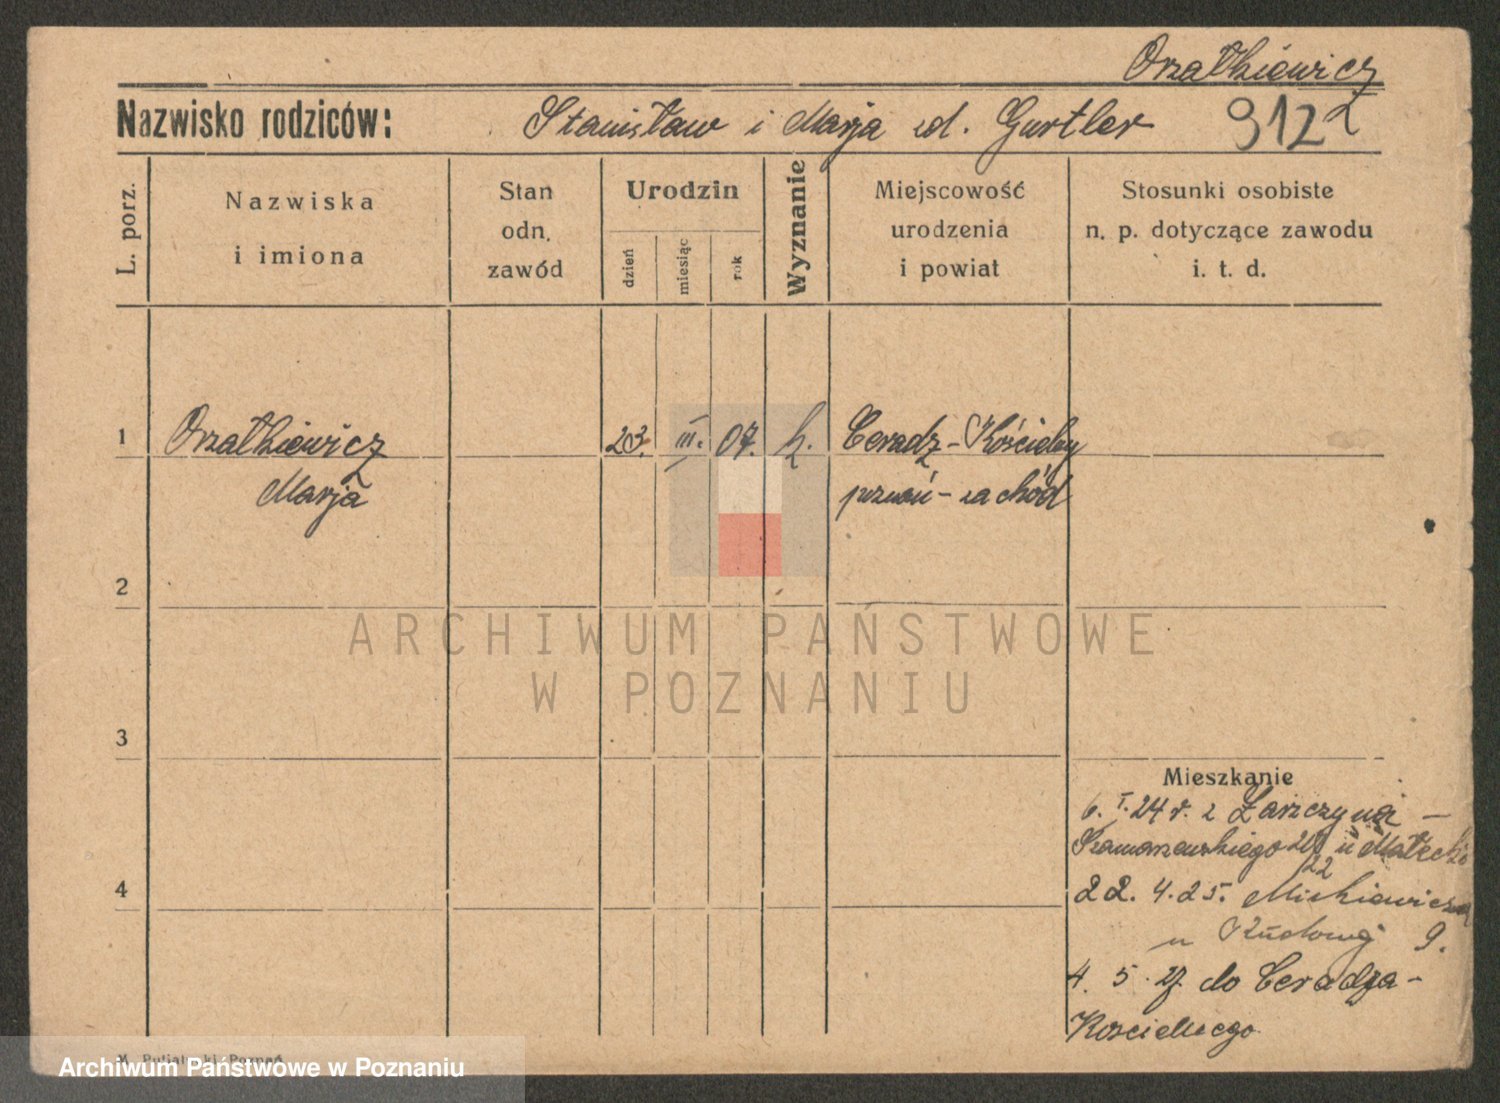 Orzałkiewicz
Nazwisko rodziców: Stanisław i Marja zd. Gurtler 9122
L. porz.
Nazwiska
i imiona
Stan
odn.
zawód
Urodzin
dzień
miesiąc
rok
Wyznanie
Miejscowość
urodzenia
i powiat
Stosunki osobiste
n. p. dotyczące zawodu
i. t. d.
1 Orzałkiewicz 23. III. 07. k. Ceradz-Kościelny
Marja poznań-zachód
2
3
4
ARCHIWUM PAŃSTWOWE
W POZNANIU
Mieszkanie
6. I. 24 r. z
Szamarzewskiego u
22
22. 4. 25. Mickiewicza
u 9.
4. 5. 27. do Ceradza-
Kościelnego
Archiwum Państwowe w Poznaniu